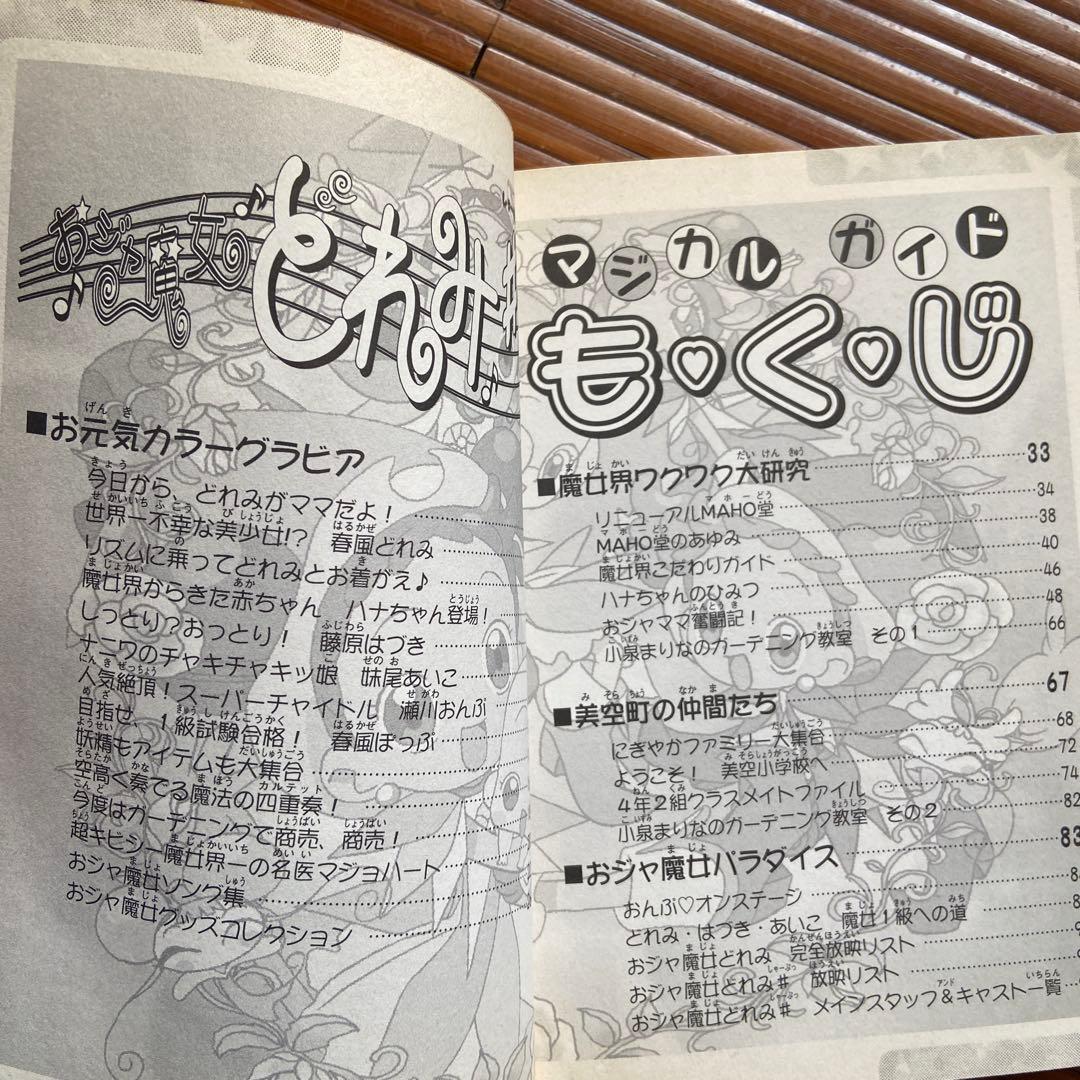 おジャ魔女
どれみ
マジカル ガイド
も・く・じ
■お元気カラーグラビア
今日から、どれみがママだよ!
世界一不幸な美少女!? 春風どれみ
リズムに乗ってどれみとお着がえ♪
魔女界からきた赤ちゃん ハナちゃん登場!
しっとり?おっとり! 藤原はづき
ナニワのチャキチャキッ娘 妹尾あいこ
人気絶頂!スーパーチャイドル 瀬川おんぷ
目指せ、1級試験合格! 春風ぽっぷ
妖精もアイテムも大集合
空高く奏でる魔法の四重奏!
今度はガーデニングで商売、商売!
超キビシー魔女界一の名医マジョハート
おジャ魔女ソング集
おジャ魔女グッズコレクション
■魔女界ワクワク大研究 33
リニューアルMAHO堂 34
MAHO堂のあゆみ 38
魔女界こだわりガイド 40
ハナちゃんのひみつ 46
おジャママ奮闘記! 48
小泉まりなのガーデニング教室 その1 66
■美空町の仲間たち 67
にぎやかファミリー大集合 68
ようこそ! 美空小学校へ 72
4年2組クラスメイトファイル 74
小泉まりなのガーデニング教室 その2 82
■おジャ魔女パラダイス 83
おんぷ♡オンステージ
どれみ・はづき・あいこ 魔女1級への道
おジャ魔女どれみ 完全放映リスト
おジャ魔女どれみ♯ 放映リスト
おジャ魔女どれみ♯ メインスタッフ&キャスト一覧